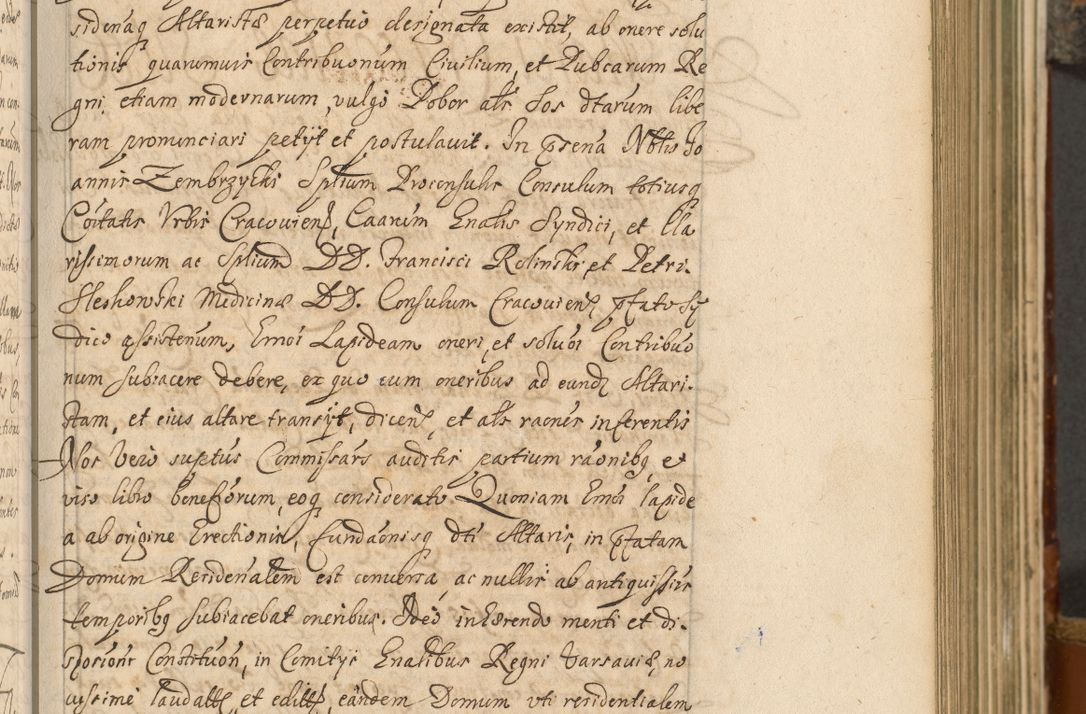 sidenaq Altaristæ perpetuo designata existit, ab onere solu
tionis quarumvis Contribuonum Civilium, et Pubcarum Re
gni, etiam modernarum, vulgo Pobor als Sos dtarum libe
ram pronunciari petijt et postulavit. In psena Nbtis Jo
annis Zembrzycki Splium Proconsulis Consulum totiusq
Coitatis Urbis Cracovien, Caarum Enalis Syndici, et Cla
rissimorum ac Splium DD. Francisci Rolinski, et Petri
Sleskowski Medicinæ DD. Consulum Cracovien ptato Sÿ
dico assistenum, Emoi Lapideam oneri, et soluoi Contribuo
num subiacere debere, ex quo cum oneribus ad eund Altari-
stam, et eius altare transijt, dicen, et als raones inferentis
Nos Vero suptus Commissars auditis partium raonibq, et
viso libro beneforum, eoq considerato Quoniam Emoi lapide
a ab origine Erectionis, fundaonisq dti Altaris, in ptatam
Domum Residenalem est conversa, ac nullis ab antiquissis
temporibq subiacebat oneribus. Ideo inhærendo menti et di-
sposioni Constituon, in Comitijs Enalibus Regni Varsaviæ, no
vissime laudatt, et editt, eandem Domum uti residentialem